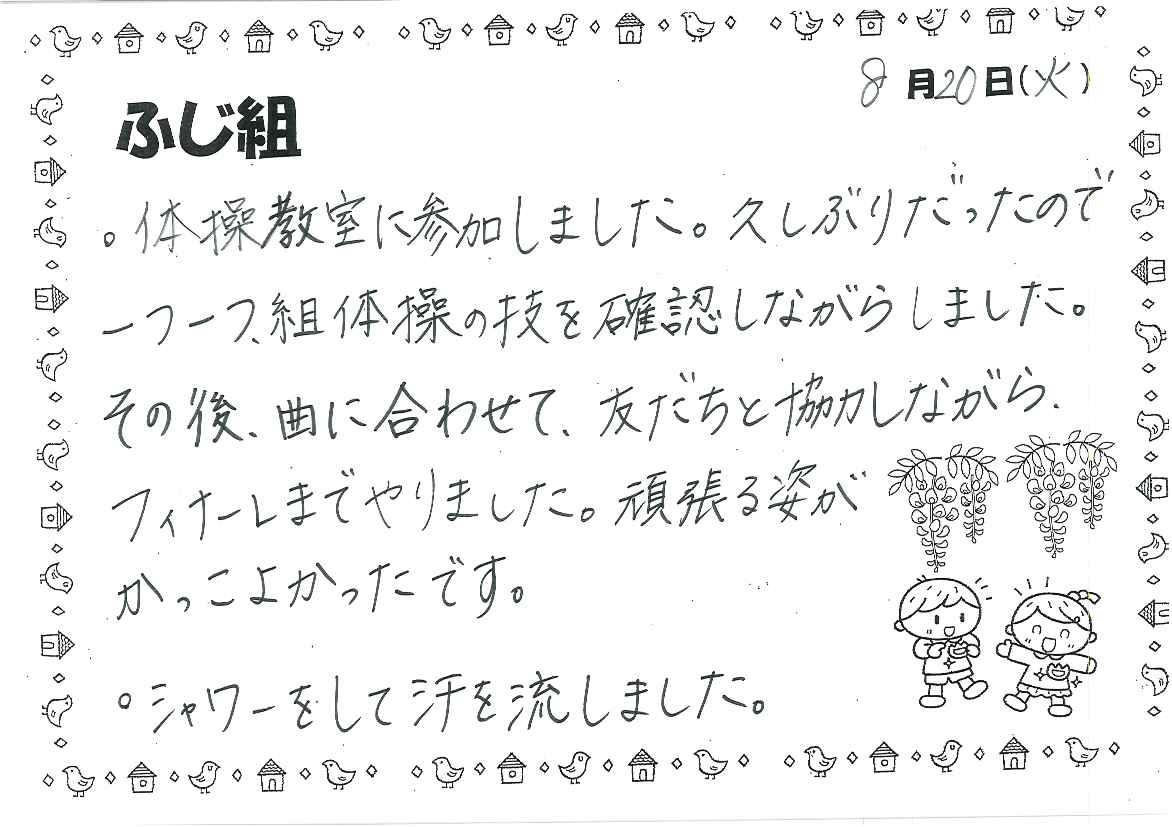 8月20日(火)
ふじ組
。体操教室に参加しました。久しぶりだったので
一つ一つ、組体操の技を確認しながらしました。
その後、曲に合わせて、友だちと協力しながら、
フィナーレまでやりました。頑張る姿が
かっこよかったです。
。シャワーをして汗を流しました。